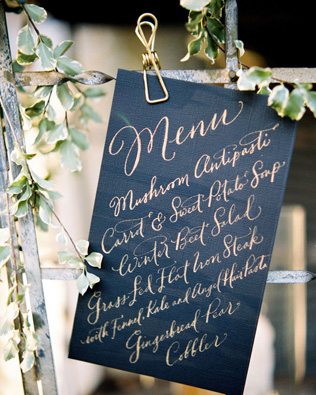 Menu
Mushroom Antipasti
Carrot & Sweet Potato Soup
Winter Beet Salad
Grass Fed Flat Iron Steak
with Fennel, Kale and Angel Hair Pasta
Gingerbread Pear
Cobbler